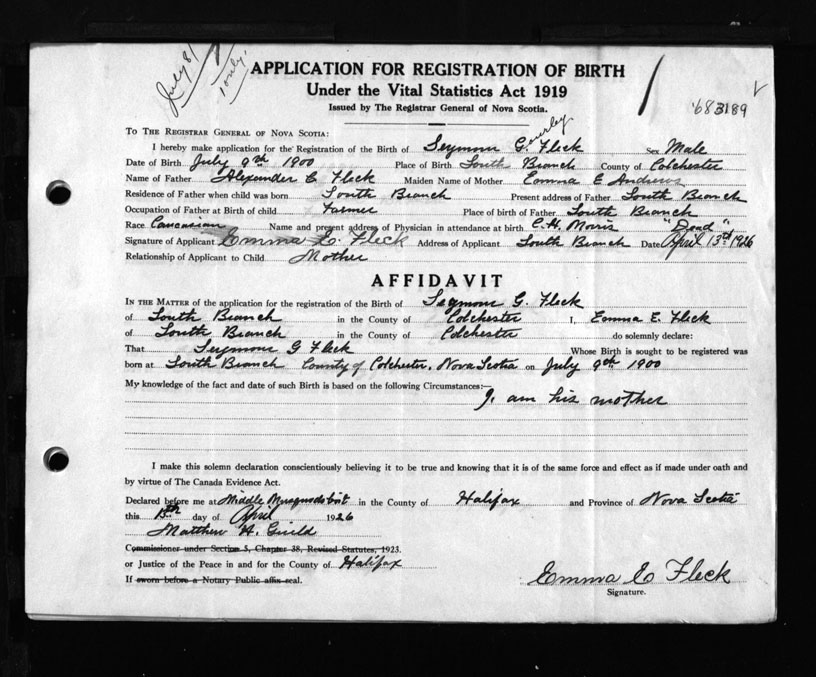 July 8/
1 only.
APPLICATION FOR REGISTRATION OF BIRTH
Under the Vital Statistics Act 1919
Issued by The Registrar General of Nova Scotia.
683189
TO THE REGISTRAR GENERAL OF NOVA SCOTIA:
I hereby make application for the Registration of the Birth of Seymour G. Fleck Sex Male
Date of Birth July 9th 1900 Place of Birth South Branch County of Colchester
Name of Father Alexander C Fleck Maiden Name of Mother Emma E Andrews
Residence of Father when child was born South Branch Present address of Father South Branch
Occupation of Father at Birth of child Farmer Place of birth of Father South Branch
Race Caucasian Name and present address of Physician in attendance at birth C. H. Morris "Dead"
Signature of Applicant Emma E. Fleck Address of Applicant South Branch Date April 13th 1926
Relationship of Applicant to Child Mother
AFFIDAVIT
IN THE MATTER of the application for the registration of the Birth of Seymour G. Fleck
of South Branch in the County of Colchester I, Emma E. Fleck
of South Branch in the County of Colchester do solemnly declare:
That Seymour G Fleck Whose Birth is sought to be registered was
born at South Branch County of Colchester, Nova Scotia on July 9th 1900
My knowledge of the fact and date of such Birth is based on the following Circumstances:—
I am his mother
I make this solemn declaration conscientiously believing it to be true and knowing that it is of the same force and effect as if made under oath and
by virtue of The Canada Evidence Act.
Declared before me at Middle Musquodoboit in the County of Halifax and Province of Nova Scotia
this 13th day of April 1926
Matthew H. Guild
Commissioner under Section 5, Chapter 38, Revised Statutes, 1923.
or Justice of the Peace in and for the County of Halifax
If sworn before a Notary Public affix seal.
Emma E Fleck
Signature.